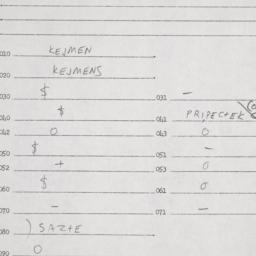 010 KEJMEN
020 KEJMENS
030 $ 031 –
040 $ 041 PRIPECTEK
042 0 043 0
050 $ 051 –
052 + 053 0
060 $ 061 0
070 – 071 –
080 ) SAZTE
090 0